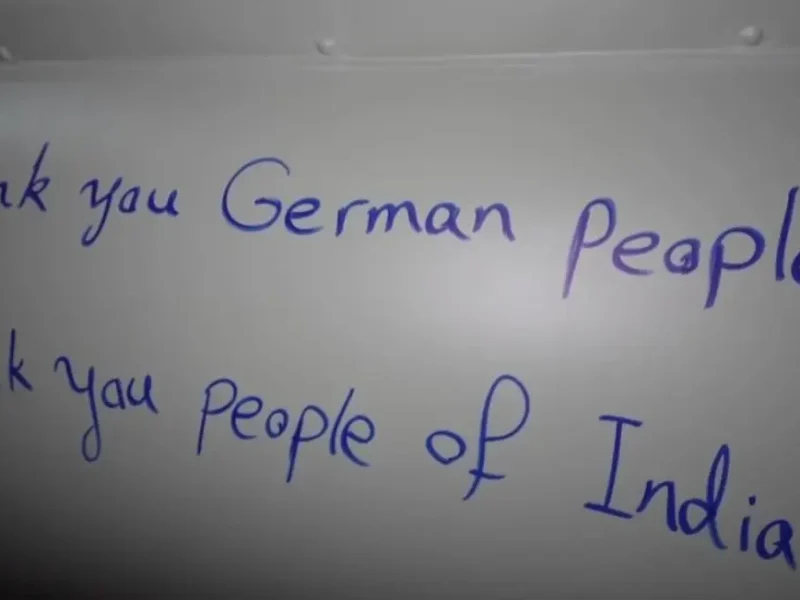 nk you German People
k you people of India